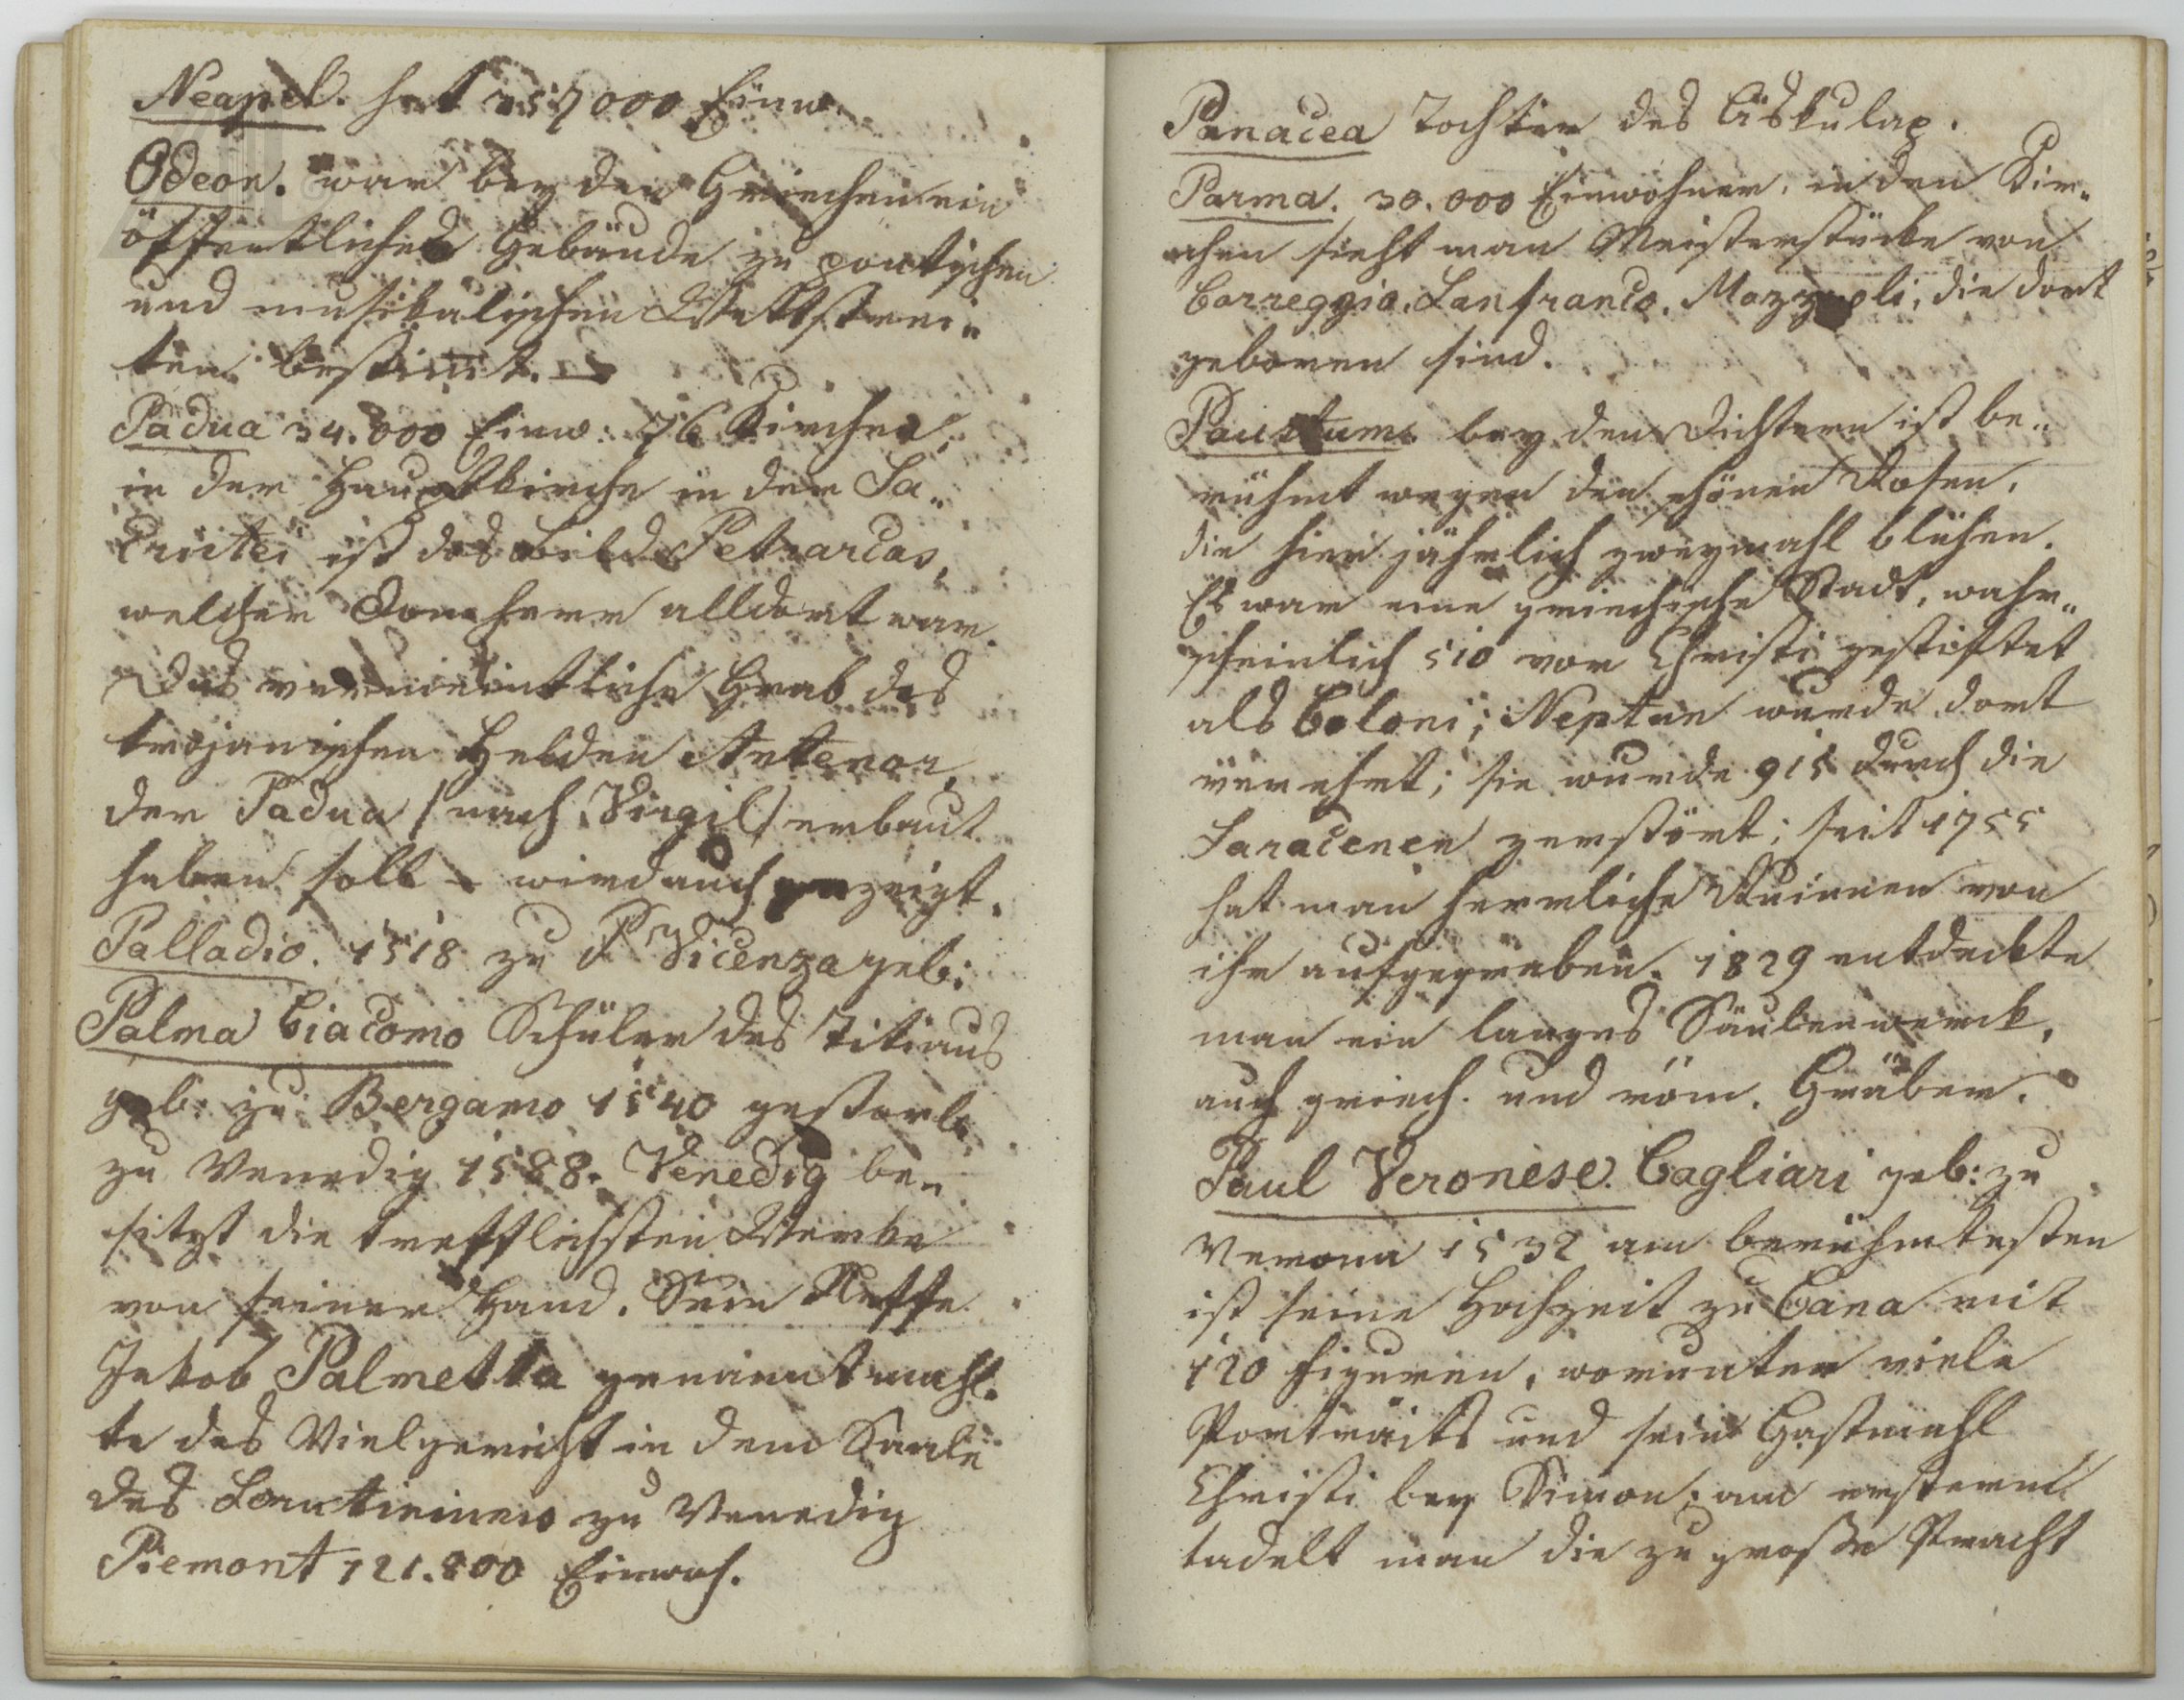 Neapel. hat 357000 Einw.
Odeon. war bey den Griechen ein
öffentliches Gebäude zu poetischen
und musikalischen Wettstrei„
ten bestimt. –
Padua 34.000 Einw: 76 Kirchen,
in der Hauptkirche in der Sa„
cristei ist das Bild Petrarcas,
welcher Domherr alldort war.
Das vermeintliche Grab des
trojanischen Helden Antenor,
der Padua /nach Virgil/ erbaut
haben soll – wird auch gezeigt.
Palladio. 1518 zu Vicenza geb:
Palma Giacomo Schüler des Titians
geb: zu Bergamo 1540 gestorb.
zu Venedig 1588. Venedig be„
sitzt die trefflichsten Werke
von seiner Hand. Sein Neffe
Jakob Palmetta genannt mahl„
te das Weltgericht in dem Saale
des zu Venedig
Piemont 121.800 Einwoh.
Panacea Tochter des Äskulap.
Parma. 30.000 Einwohner. in den Kir„
chen sieht man Meisterstücke von
Correggio. Lanfranco. Mazzuoli, die dort
geboren sind.
Paestum. bey den Dichtern ist be„
rühmt wegen den schönen Rosen,
die hier jährlich zweymahl blühen.
Es war eine griechische Stadt, wahr„
scheinlich 510 vor Christi gestiftet
als Coloni; Neptun wurde dort
verehrt; sie wurde 915 durch die
Saracenen zerstört; seit 1755
hat man herrliche Ruinen von
ihr aufgegraben. 1829 entdeckte
man ein langes Säulenwerck,
auch griech. und röm. Gräber.
Paul Veronese. Cagliari geb: zu
Verona 1532 am berühmtesten
ist seine Hochzeit zu Cana mit
120 Figuren, worunter viele
Porträits und sein Gastmahl
Christi bey Simon; am erstern
tadelt man die zu große Pracht